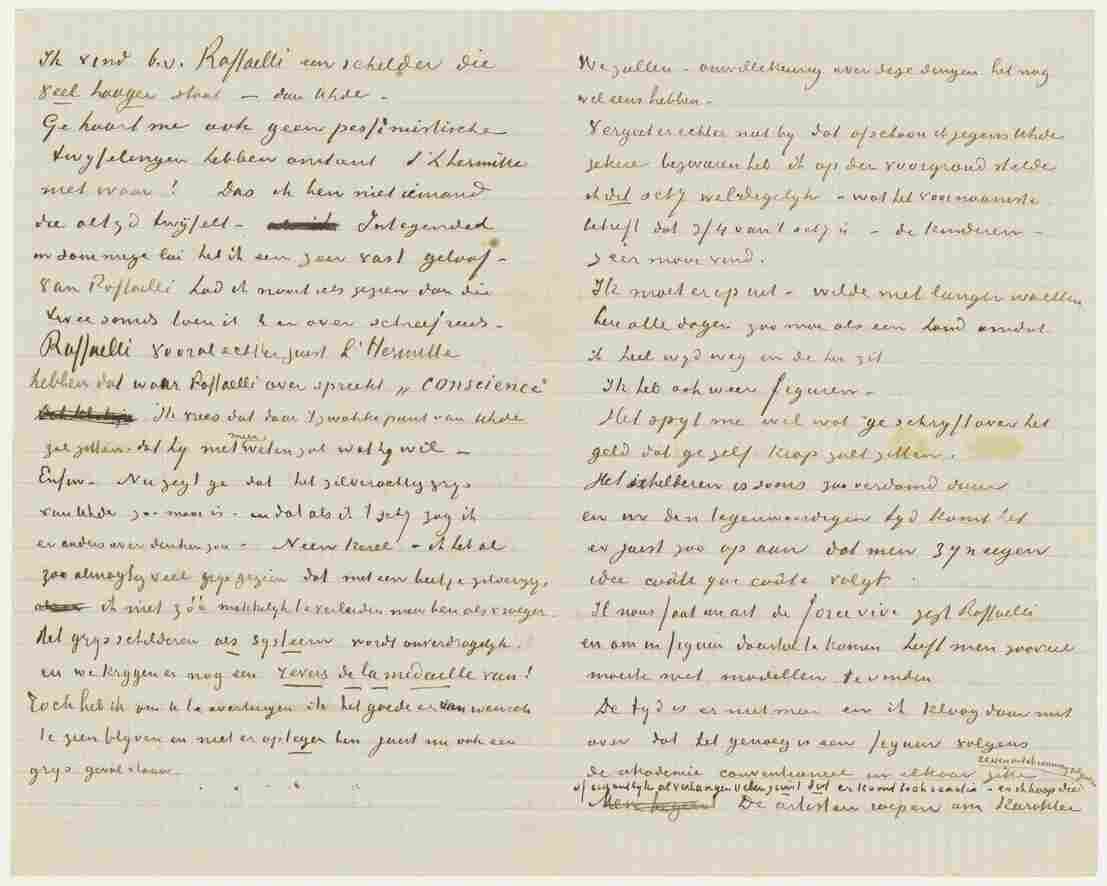 Ik vind b.v. Raffaelli een schilder die
veel hooger staat — dan Uhde —
Ge hoort me ook geen pessimistische
twyfelingen hebben omtrent L'Lhermitte
niet waar! Dus ik ben niet iemand
die altyd twyfelt — Integendeel
in sommige lui heb ik een zeer vast geloof —
Van Raffaelli had ik nooit iets gezien dan die
twee sounds toen ik U er over schreef reeds —
Raffaelli vooral echter juist L'Hermitte
hebben dat waar Raffaelli over spreekt „conscience"
Ik vrees dat daar 't zwakke punt van Uhde
zal zitten. dat hy niet meer weten zal wat hy wil —
Enfin — Nu zegt ge dat het zilverachtig grys
van Uhde zoo mooi is — en dat als ik 't zelf zag ik
er anders over denken zou — Neen kerel — ik heb al
zoo almagtig veel grys gezien dat met een beetje zilvergrys
ik niet zóó makkelyk te verleiden meer ben als vroeger
Het grys schilderen als systeem wordt onverdragelyk.
en we krygen er nog een revers de la medaille van!
Toch heb ik om U te overtuigen ik het goede er van wensch
te zien blyven en niet er op tegen ben juist nu ook een
grys geval staan
We zullen — onwillekeurig over deze dingen het nog
wel eens hebben —
Vergeet echter niet by dat ofschoon ik jegens Uhde
zekere bezwaren heb ik op den voorgrond stelde
ik dat schij wel degelyk — wat het voornaamste
betreft dat 3/4 van 't schij is — de kinderen —
zéér mooi vind.
Ik moet er op uit — wilde niet langer wachten,
ben alle dagen zoo moe als een hond omdat
ik heel wyd weg in de hei zit
Ik heb ook weer figuren —
Het spyt me wel wat ge schryft over het
geld dat ge zelf krap zult zitten.
Het schilderen is soms zoo verdomd duur
en in den tegenwoordigen tyd komt het
er juist zoo op aan dat men zyn eigen
idee coûte que coûte volgt.
Il nous faut un art de force vive zegt Raffaelli
en om in figuur daartoe te komen heeft men zooveel
moeite met modellen te vinden
De tyd is er niet meer en ik klaag daar niet
over dat het genoeg is een figuur volgens
de akademie conventioneel in elkaar zit
of eigentlyk al verlangen velen juist dat er komt toch reactie — en ik hoop die
De artisten roepen om Karakter